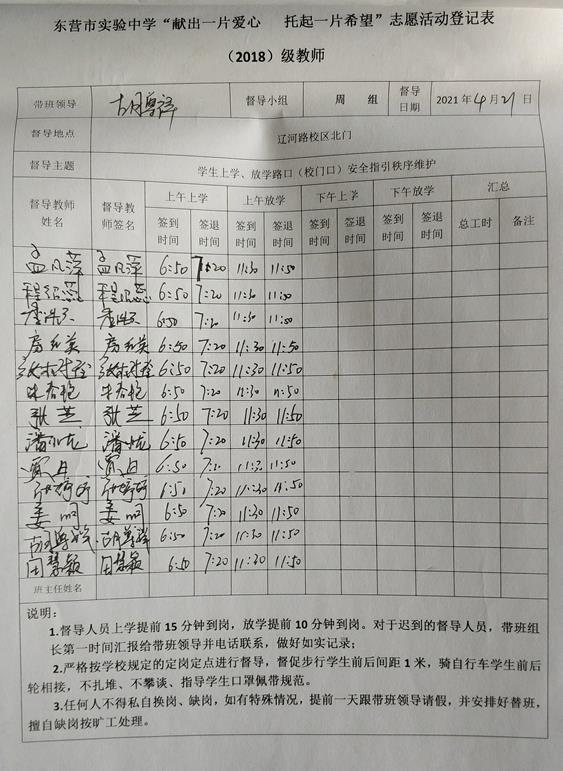 东营市实验中学“献出一片爱心 托起一片希望”志愿活动登记表
（2018）级教师
带班领导 督导小组 周 组 督导日期 2021年4月21日
督导地点 辽河路校区北门
督导主题 学生上学、放学路口（校门口）安全指引秩序维护
督导教师姓名 督导教师签名 上午上学 上午放学 下午上学 下午放学 汇总
签到时间 签退时间 签到时间 签退时间 签到时间 签退时间 签到时间 签退时间 总工时 备注
孟凡萍 孟凡萍 6:50 7:20 11:30 11:50
6:50 7:20 11:30 11:50
6:50 7:20 11:30 11:50
房红英 房红英 6:50 7:20 11:30 11:50
6:50 7:20 11:30 11:50
6:50 7:20 11:30 11:50
张芝 张芝 6:50 7:20 11:30 11:50
6:50 7:20 11:30 11:50
6:50 7:20 11:30 11:50
6:50 7:20 11:30 11:50
姜明 姜明 6:50 7:20 11:30 11:50
6:50 7:20 11:30 11:50
田慧颖 田慧颖 6:50 7:20 11:30 11:50
班主任姓名
说明：
1.督导人员上学提前15分钟到岗，放学提前10分钟到岗。对于迟到的督导人员，带班组
长第一时间汇报给带班领导并电话联系，做好如实记录；
2.严格按学校规定的定岗定点进行督导，督促步行学生前后间距1米，骑自行车学生前后
轮相接，不扎堆、不攀谈、指导学生口罩佩带规范。
3.任何人不得私自换岗、缺岗，如有特殊情况，提前一天跟带班领导请假，并安排好替班，
擅自缺岗按旷工处理。